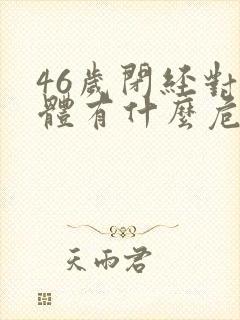 46歲閉經對
體有什麼危
天雨君